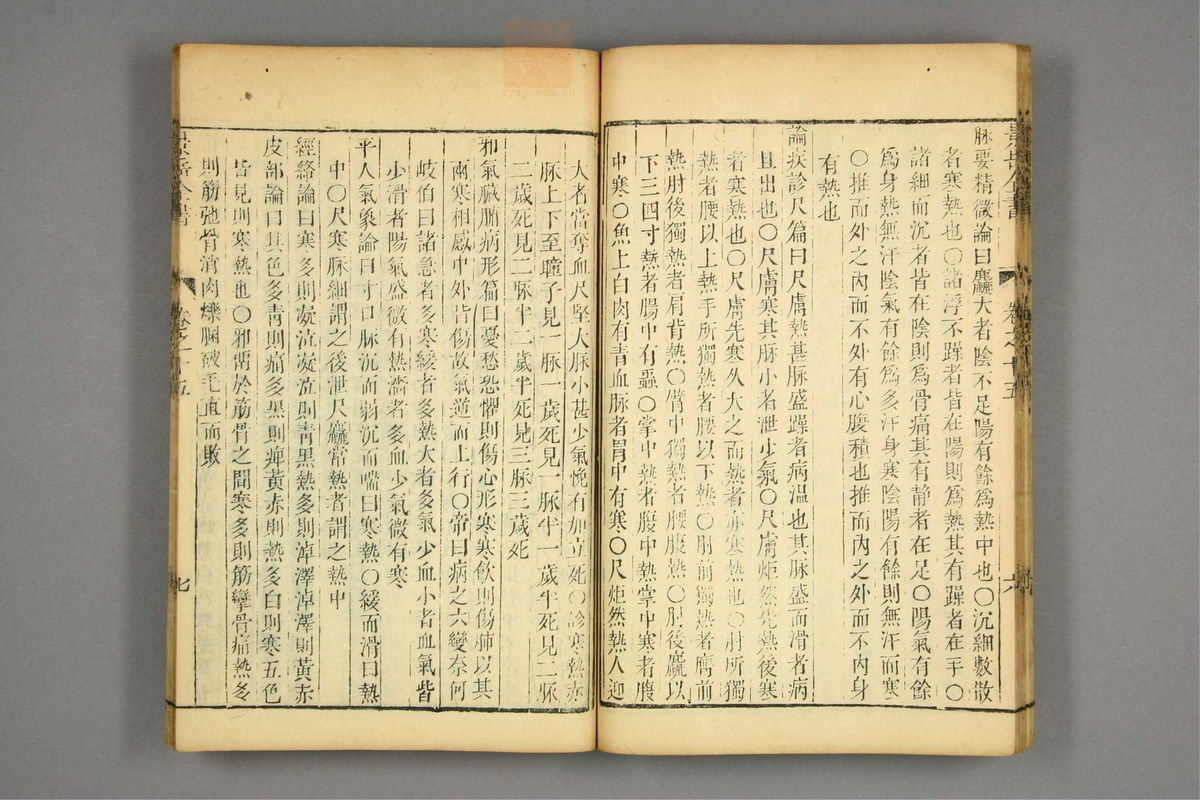 景岳全書
卷之十五
六
脉要精微論曰麤大者陰不足陽有餘為熱中也○沉細數散
者寒熱也○諸浮不躁者皆在陽則為熱其有躁者在手○
諸細而沉者皆在陰則為骨痛其有静者在足○陽氣有餘
為身熱無汗陰氣有餘為多汗身寒陰陽有餘則無汗而寒
○推而外之內而不外有心腹積也推而內之外而不內身
有熱也
論疾診尺篇曰尺膚熱甚脉盛躁者病溫也其脉盛而滑者病
且出也○尺膚寒其脉小者泄少氣○尺膚炬然先熱後寒
者寒熱也○尺膚先寒久大之而熱者亦寒熱也○肘所獨
熱者腰以上熱手所獨熱者腰以下熱○肘前獨熱者膺前
熱肘後獨熱者肩背熱○臂中獨熱者腰腹熱○肘後麤以
下三四寸熱者腸中有蟲○掌中熱者腹中熱掌中寒者腹
中寒○魚上白肉有青血脉者胃中有寒○尺炬然熱人迎
大者當奪血尺堅大脉小甚少氣悗有加立死○診寒熱赤
脉上下至瞳子見一脉一歲死見一脉半一歲半死見二脉
二歲死見二脉半二歲半死見三脉三歲死
邪氣臟腑病形篇曰憂愁恐懼則傷心形寒寒飲則傷肺以其
兩寒相感中外皆傷故氣逆而上行○帝曰病之六變奈何
岐伯曰諸急者多寒緩者多熱大者多氣少血小者血氣皆
少滑者陽氣盛微有熱濇者多血少氣微有寒
平人氣象論曰寸口脉沉而弱沉而喘曰寒熱○緩而滑曰熱
中○尺寒脉細謂之後泄尺麤常熱者謂之熱中
經絡論曰寒多則凝泣凝泣則青黑熱多則淖澤淖澤則黃赤
皮部論曰其色多青則痛多黑則痹黃赤則熱多白則寒五色
皆見則寒熱也○邪留於筋骨之間寒多則筋攣骨痛熱多
則筋弛骨消肉爍䐃破毛直而敗
景岳全書
卷之十五
七
zysj.com.cn